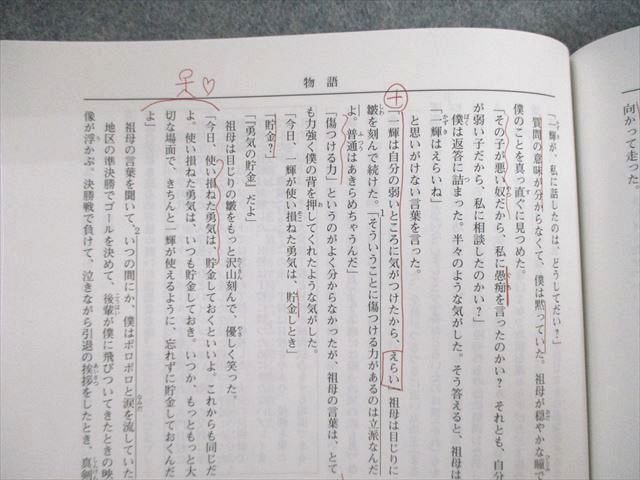 向かって走った
物語
「一輝が、私に話したのは、どうしてだい?」
質問の意味が分からなくて、僕は黙っていた。祖母が穏やかな瞳で
僕のことを真っ直ぐに見つめた。
「その子が悪い奴だから、私に愚痴を言ったのかい? それとも、自分
が弱い子だから、私に相談したのかい?」
僕は返答に詰まった。半々のような気がした。そう答えると、祖母は
「一輝はえらいね」
と思いがけない言葉を言った。
「一輝は自分の弱いところに気がつけたから、えらい」祖母は目じりに
皺を刻んで続けた。「そういうことに傷つける力があるのは立派なんだ
よ。普通はあきらめちゃうんだ」
「傷つける力」というのがよく分からなかったが、祖母の言葉は、とて
も力強く僕の背を押してくれたような気がした。
「今日、一輝が使い損ねた勇気は、貯金しとき」
「貯金?」
「勇気の貯金」だよ」
祖母は目じりの皺をもっと沢山刻んで、優しく笑った。
「今日、使い損ねた勇気は、貯金しておくといいよ。これからも同じだ
よ、使い損ねた勇気は、いつも貯金しておき。いつか、もっともっと大
切な場面で、きちんと一輝が使えるように、忘れずに貯金しておくんだ
よ」
祖母の言葉を聞いて、いつの間にか、僕はボロボロと涙を流していた
地区の準決勝でゴールを決めて、後輩が僕に飛びついてきたときの映
像が浮かぶ。決勝戦で負けて、泣きながら引退の挨拶をしたとき、真剣